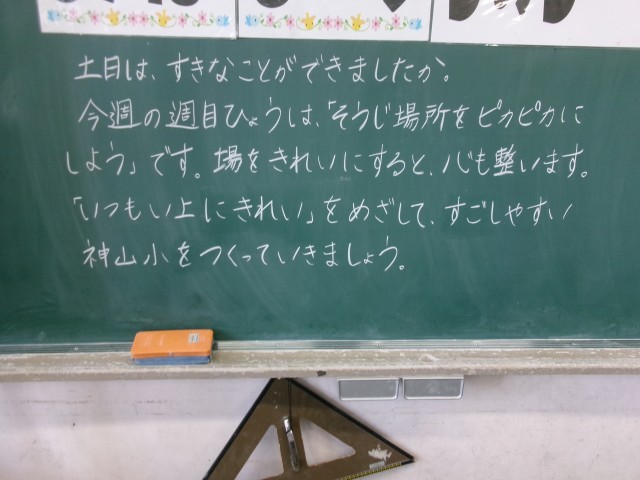 土日は、すきなことができましたか。
今週の週目ひょうは、「そうじ場所をピカピカに
しよう」です。場をきれいにすると、心も整います。
「いつもい上にきれい」をめざして、すごしやすい
神山小をつくっていきましょう。